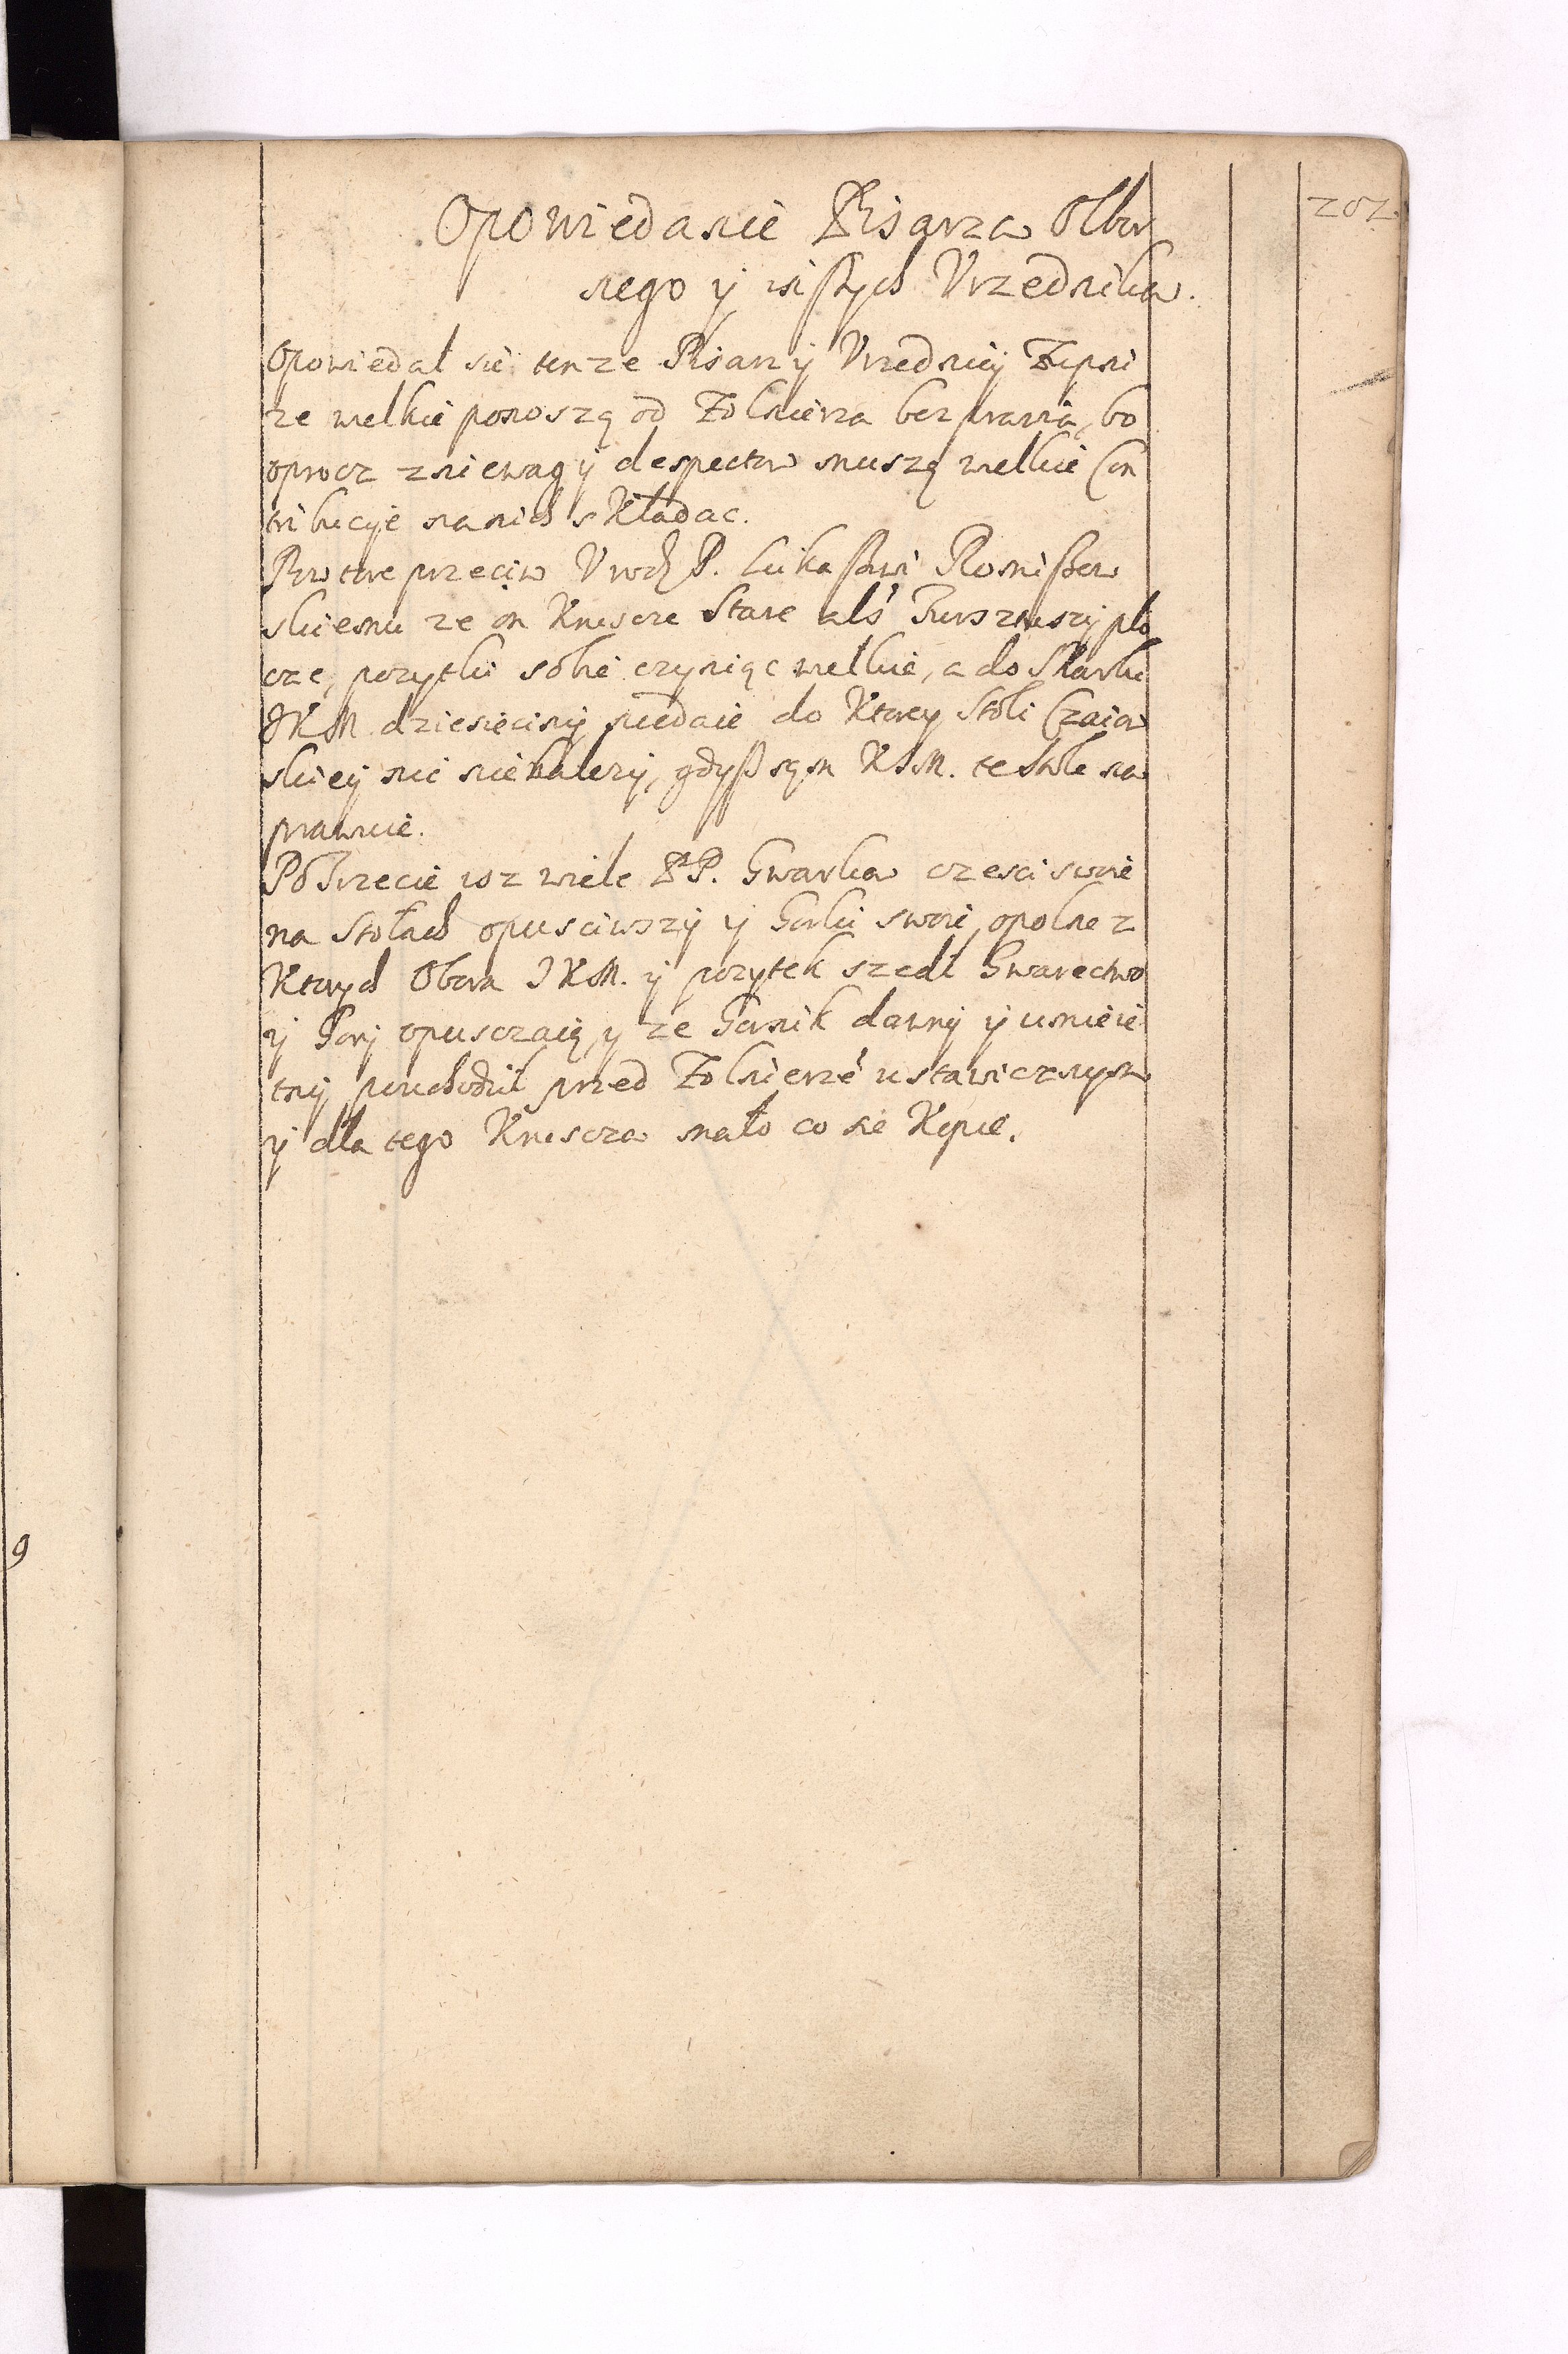 202.
Opowiedanie Pisarza Olbor
nego y inßych Vrzednikow.
Opowiedał sie tenze Pisarz y Vrzednicy Zupni
ze welkie ponoszą od Zolnierza bezprawia, bo
oprocz zniewag y despectow muszą welkie Con
tribucye na nich składac.
Powtore przeciw Vrodz P. Lukaßowi
skiemu ze on Knescze Stare als plo
cze, pozytki sobie czyniąc welkie, a do Skarbu
JKM dziesieciny niedaie do Ktorey Stoli Czaiow
skiey nic nienalezy, gdyß sam KJM. te Stole na
prawuie.
Potrzecie isz wiele PP. Gwarkow czesci swoie
na Stolach opusciwszy y Gorki swoie opolne z
Ktorych Obora JKM. y pozytek szedł Gwarectwo
y Gory opusczaią, y ze Gornik dawny y umieie
tny pouchodził przed Zolnierzē ustawicznym
y dla tego Knescza mało co sie Kopie.
9